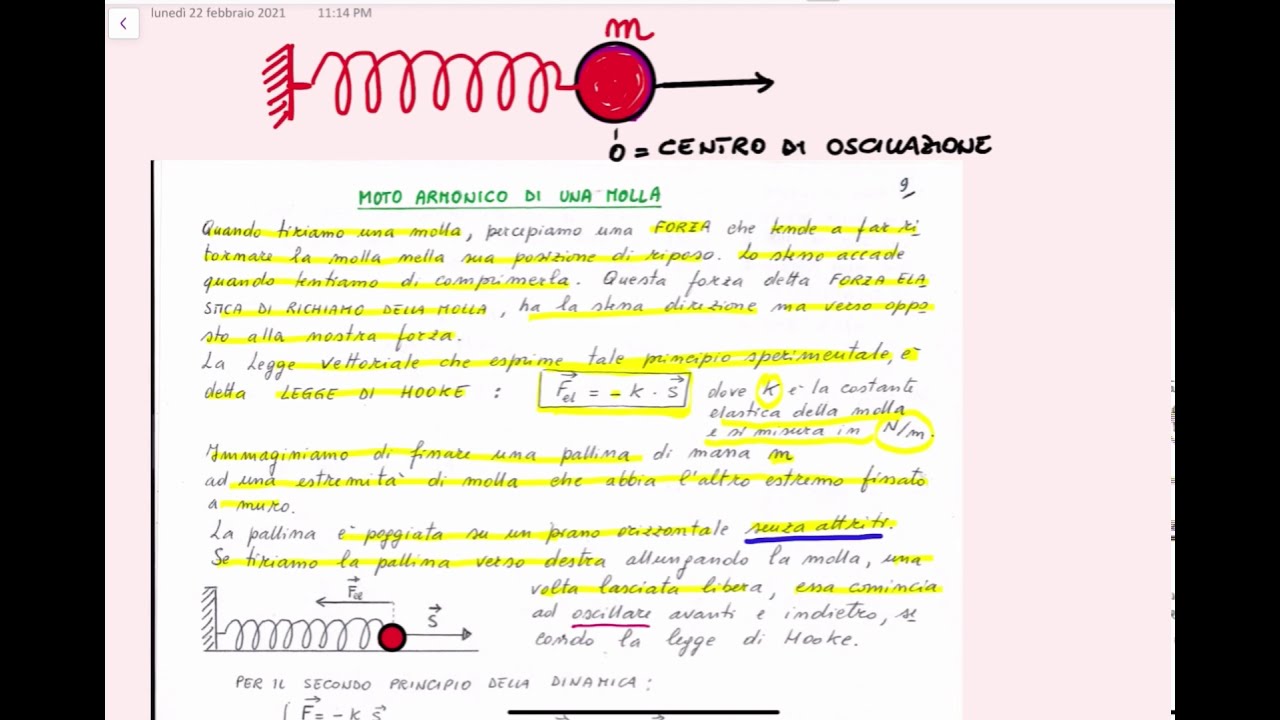 lunedì 22 febbraio 2021 11:14 PM
m
O = CENTRO DI OSCILLAZIONE
9
MOTO ARMONICO DI UNA MOLLA
Quando tiriamo una molla, percepiamo una FORZA che tende a far ri
tornare la molla nella sua posizione di riposo. Lo stesso accade
quando tentiamo di comprimerla. Questa forza detta FORZA ELA
STICA DI RICHIAMO DELLA MOLLA, ha la stessa direzione ma verso oppo
sto alla nostra forza.
La Legge vettoriale che esprime tale principio sperimentale, è
detta LEGGE DI HOOKE : F⃗el = - k · s⃗ dove k è la costante
elastica della molla
e si misura in N/m.
Immaginiamo di fissare una pallina di massa m
ad una estremità di molla che abbia l'altro estremo fissato
a muro.
La pallina è poggiata su un piano orizzontale senza attriti.
Se tiriamo la pallina verso destra allungando la molla, una
volta lasciata libera, essa comincia
ad oscillare avanti e indietro, se
condo la legge di Hooke.
F⃗el
s⃗
PER IL SECONDO PRINCIPIO DELLA DINAMICA :
F⃗ = - k s⃗